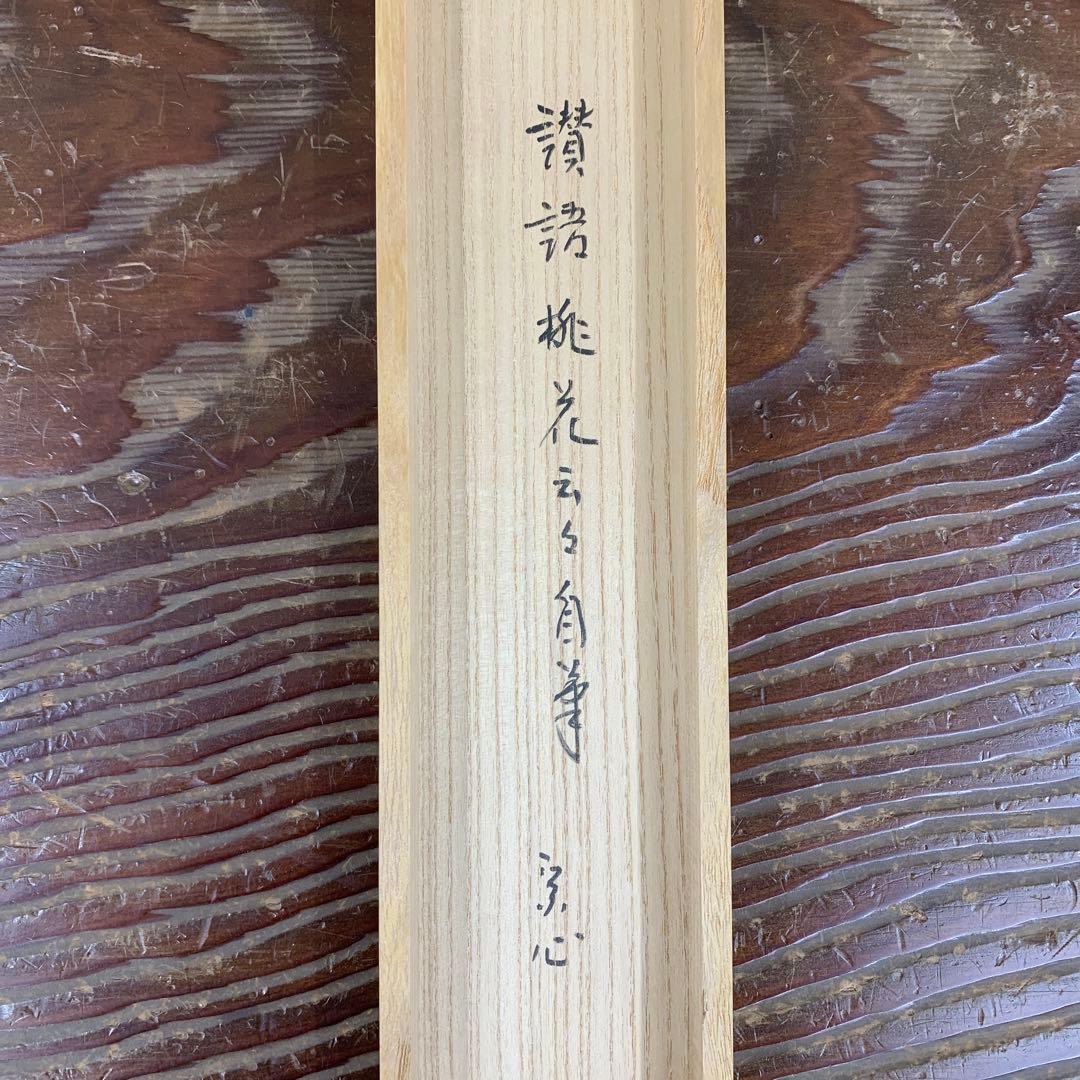 讃語桃花云々自筆 宗心